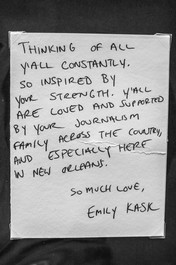 THINKING OF ALL
Y'ALL CONSTANTLY.
SO INSPIRED BY
YOUR STRENGTH. Y'ALL
ARE LOVED AND SUPPORTED
BY YOUR JOURNALISM
FAMILY ACROSS THE COUNTRY,
AND ESPECIALLY HERE
IN NEW ORLEANS.
SO MUCH LOVE,
EMILY KASK